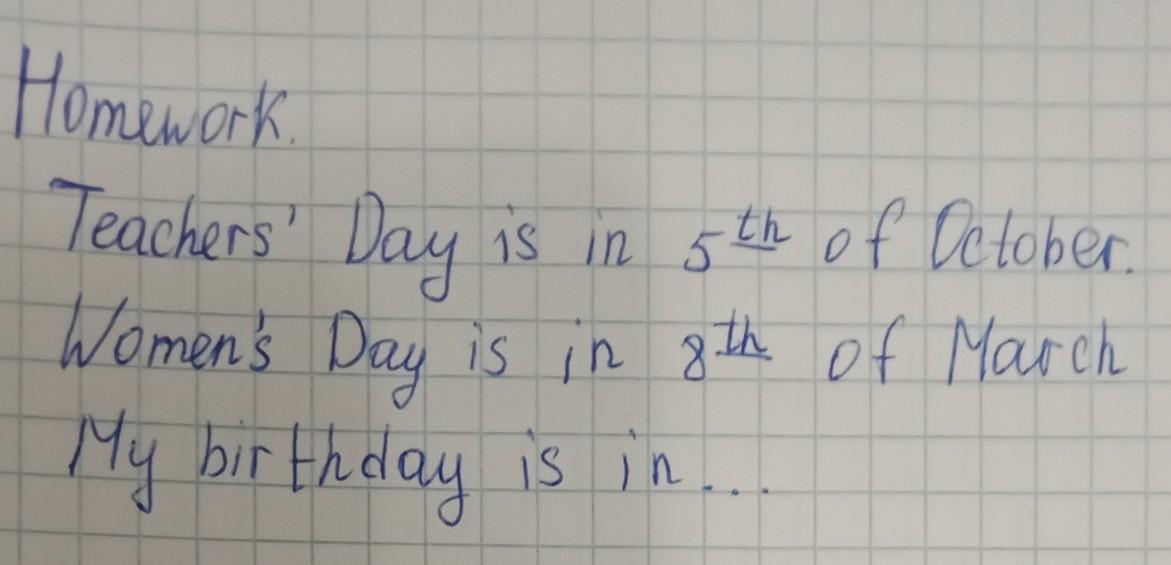 Homework.
Teachers' Day is in 5th of October.
Women's Day is in 8th of March
My birthday is in...